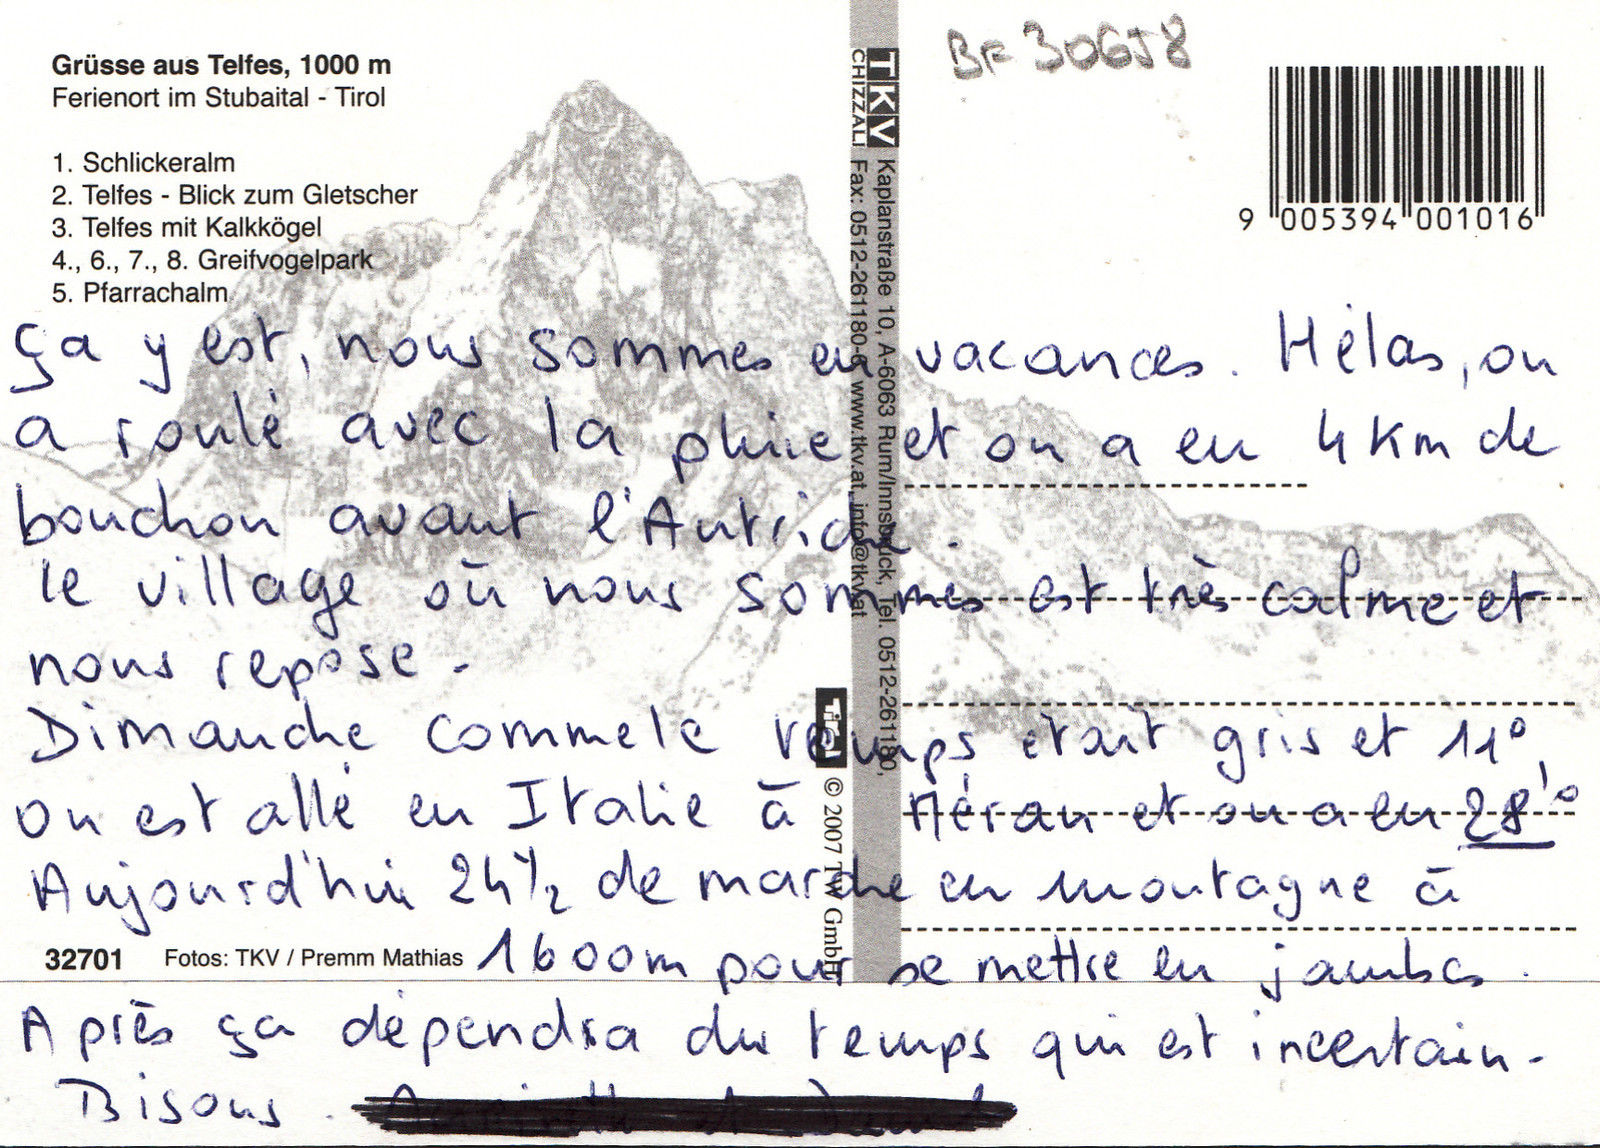 Grüsse aus Telfes, 1000 m
Ferienort im Stubaital - Tirol
1. Schlickeralm
2. Telfes - Blick zum Gletscher
3. Telfes mit Kalkkögel
4., 6., 7., 8. Greifvogelpark
5. Pfarrachalm
BF 30658
9 005394 001016
TKV
CHIZZALI
Kaplanstraße 10, A-6063 Rum/Innsbruck, Tel. 0512-261180,
Fax: 0512-261180-6 www.tkv.at, info@tkv.at
Tirol
© 2007 TW GmbH
ça y est, nous sommes en vacances. Hélas, on
a roulé avec la pluie et on a eu 4 Km de
bouchon avant l'Autriche.
le village où nous sommes est très calme et
nous repose.
Dimanche comme le temps était gris et 11°,
on est allé en Italie à Méran et on a eu 28°
Aujourd'hui 2h½ de marche en montagne à
1600m pour se mettre en jambes.
Après ça dépendra du temps qui est incertain.
Bisous.
32701
Fotos: TKV / Premm Mathias